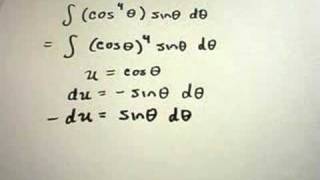 ∫ (cos⁴θ) sinθ dθ
= ∫ (cosθ)⁴ sinθ dθ
u = cosθ
du = - sinθ dθ
- du = sinθ dθ